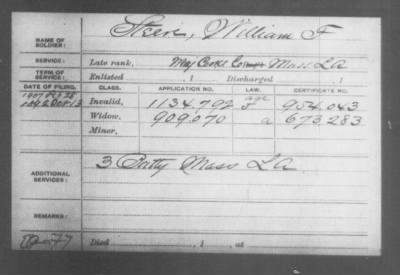 NAME OF SOLDIER: William F
SERVICE: Late rank, Maj Cooks Co Mass L A
TERM OF SERVICE: Enlisted , 1 Discharged , 1
DATE OF FILING. CLASS. APPLICATION NO. LAW. CERTIFICATE NO.
Invalid, 1134.792 age 954.043
1892 Oct 13 Widow, 909.070 a 673.283
Minor,
ADDITIONAL SERVICES: 3 Batty Mass L A
REMARKS:
Died , 1 , at